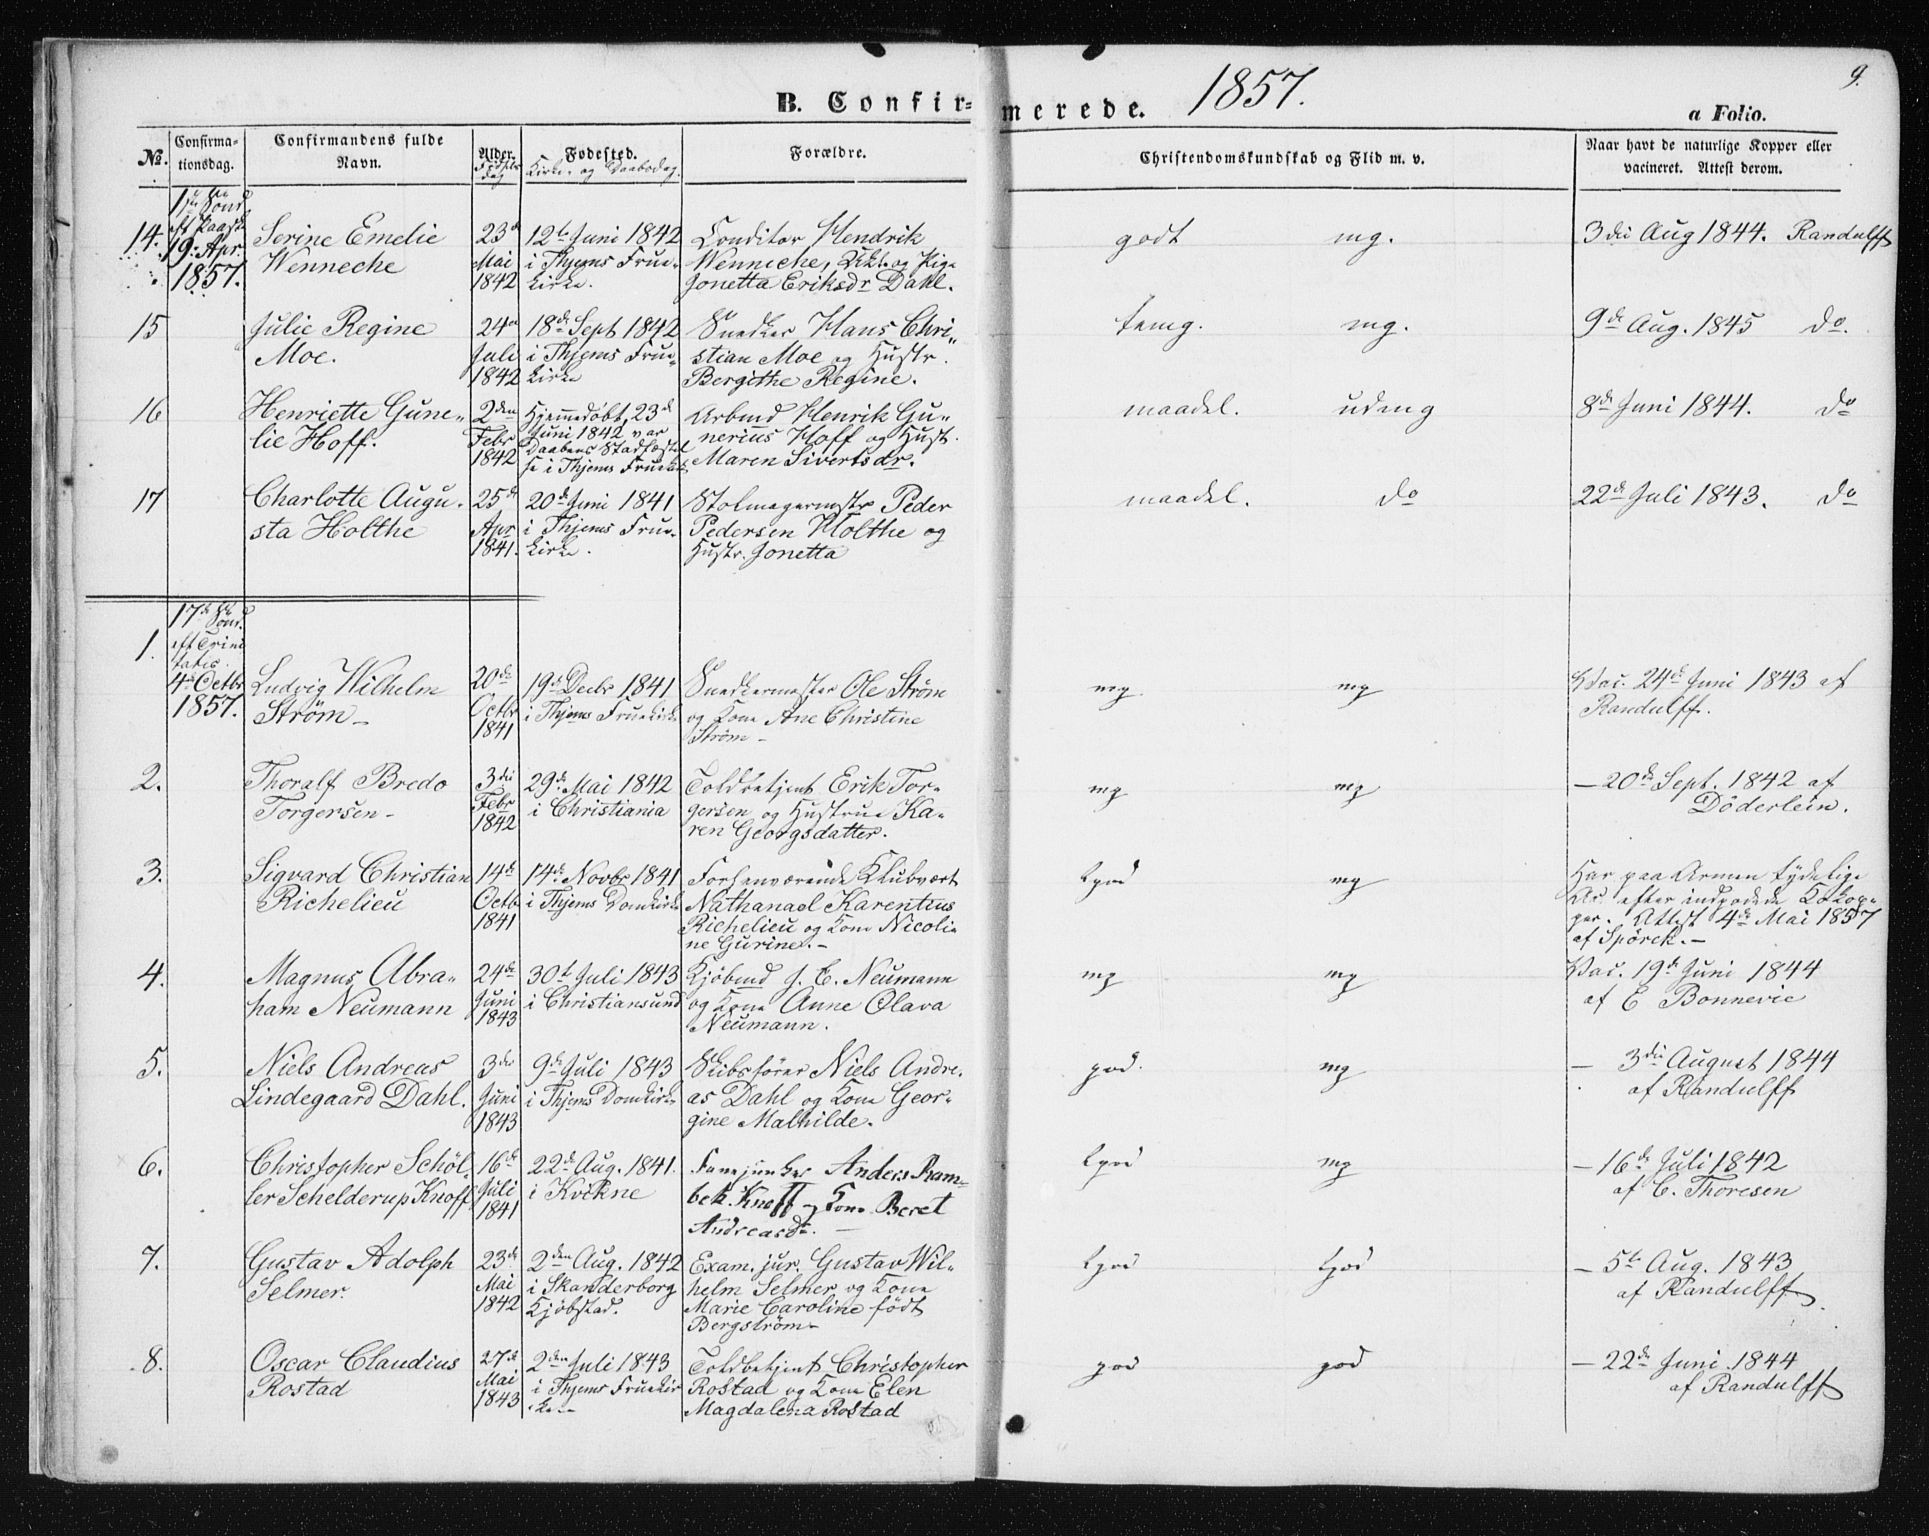 B. Confir=
merede. 1857.
9.
a Folio.
No. Confirma-
tionsdag.
Confirmandens fulde
Navn.
Alder.
Fødsels
dag
Fødested.
Kirke- og Daabsdag.
Forældre.
Christendomskundskab og Flid m. v.
Naar havt de naturlige Kopper eller
vacineret. Attest derom.
14. 1ste Sønd
eft Paaske
19. Apr.
1857.
Serine Emelie
Wenneche
23d
Mai
1842
12te Juni 1842
i Thjems Frue-
kirke.
Conditor Hendrik
Wenneche, Ukt. og Pige
Jonetta Eriksdr Dahl.
godt mg. 3die Aug 1844. Randulff
15
Julie Regine
Moe.
24de
Juli
1842
18de Sept 1842
i Thjems Frue-
kirke
Snedker Hans Chri-
stian Moe og Hustr.
Bergithe Regine.
temg. mg. 9de Aug. 1845 do.
16
Henriette Gune-
lie Hoff.
2den
Febr
1842
Hjemmedøbt, 23d
Juni 1842 var
Daabens Stadfæstel
se i Thjems Fruek.
Arbmd Henrik Gu-
nerius Hoff og Hust.
Maren Sivertsdr.
maadel. udmg 8de Juni 1844. do
17
Charlotte Augu-
sta Holthe
25de
Apr
1841.
20de Juni 1841
i Thjems Frue-
kirke.
Stolmagermstr Peder
Pedersen Holthe og
Hustr. Jonetta
maadel. do 22de Juli 1843. do
1. 17de Sønd.
eft Trini
tatis.
4de Octbr
1857.
Ludvig Wilhelm
Strøm-
20de
Octbr
1841
19de Decbr 1841
i Thjems Fruekirke
Snedkermester Ole Strøm
og Kone Ane Christine
Strøm-
mg mg Vac. 24de Juni 1843 af
Randulff.
2.
Thoralf Bredo
Torgersen-
3die
Febr
1842
29de Mai 1842
i Christiania
Toldbetjent Erik Tor-
gersen og Hustrue Ka-
ren Georgsdatter.
mg mg - 20de Sept. 1842 af
Döderlein.
3.
Sigvard Christian
Richelieu
14de
Octb
1841
14de Novbr 1841
i Thjems Domkirke
Forhenværende Klubvært
Nathanael Karentius
Richelieu og Kone Nicoli-
ne Gurine.-
tgod mg Har paa Armen tydelige
Ar efter indpodede Kokop-
per. Attest 4de Mai 1857
af Spörck.-
4.
Magnus Abra-
ham Neumann
24de
Juni
1843
30te Juli 1843
i Christiansund
Kjøbmd J. E. Neumann
og Kone Anne Olava
Neumann.
mg mg Vac. 19de Juni 1844
af E Bonnevie
5.
Niels Andreas
Lindegaard Dahl.
3die
Juni
1843
9de Juli 1843
i Thjems Domkirke
Skibsfører Niels Andre-
as Dahl og Kone Geor-
gine Mathilde.
god. mg - 3die August 1844
af Randulff
6.
Christopher Schöl-
ler Schelderup Knoff
16de
Juli
1841
22de Aug. 1841.
i Kvikne
Fanejunker Anders Ram-
bek Knoff og Kone Beret
Andreasdr. -
tgod mg - 16de Juli 1842
af C. Thoresen
7.
Gustav Adolph
Selmer.
23de
Mai
1842
2den Aug. 1842
i Skanderborg
Kjöbstad.
Exam. jur. Gustav Wil-
helm Selmer og Kone
Marie Caroline født
Bergström-
tgod tgod - 5te Aug. 1843
af Randulff.
8.
Oscar Claudius
Rostad
27de
Mai
1843
2den Juli 1843
i Thjems Fruekir
ke
Toldbetjent Christopher
Rostad og Kone Elen
Magdalena Rostad
god god - 22de Juni 1844
af Randulff